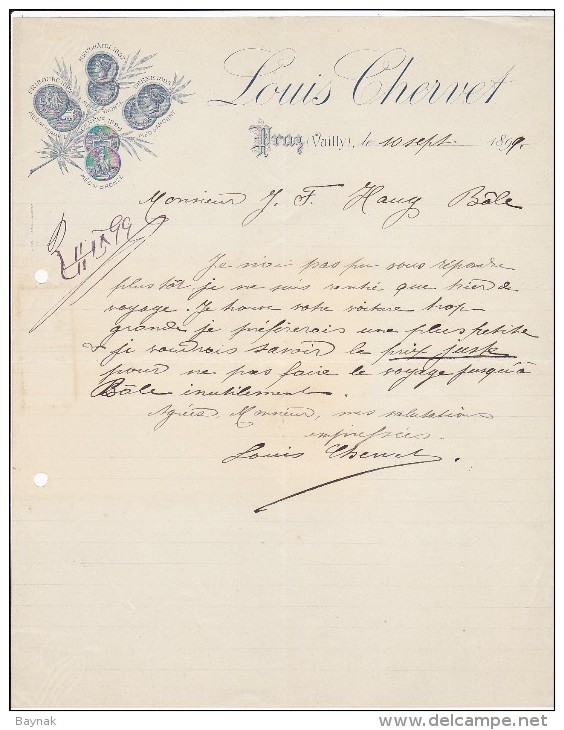 Louis Chervet
Praz (Vuilly), le 10 sept. 1899.
Monsieur J. F. Haug Bâle
11 IX 99
Je n'ai pas pu vous répondre
plus tôt, je ne suis rentré que hier de
voyage. Je trouve votre voiture trop
grande je préférerais une plus petite
je voudrais savoir le prix juste
pour ne pas faire le voyage jusqu'à
Bâle inutilement.
Agréez, Monsieur, mes salutations
empressées.
Louis Chervet.
Baynak
delcampe.net